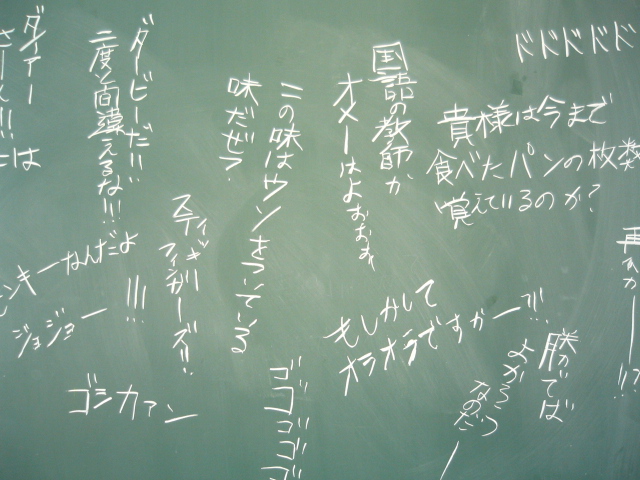 ドドドドド
貴様は今まで
食べたパンの枚数
覚えているのか?
国語の教師か
オメーはよおぉぉ
この味はウソをついている
味だぜ?
ダービーだ!!
二度と間違えるな!!!
ダァー
スティッキィ
フィンガーズ!!
なんだよ
ジョジョー
!!!
ゴシカァン
ゴゴゴゴ
もしかして
オラオラですかーッ!!
勝てば
よかろう
なのだ
ー